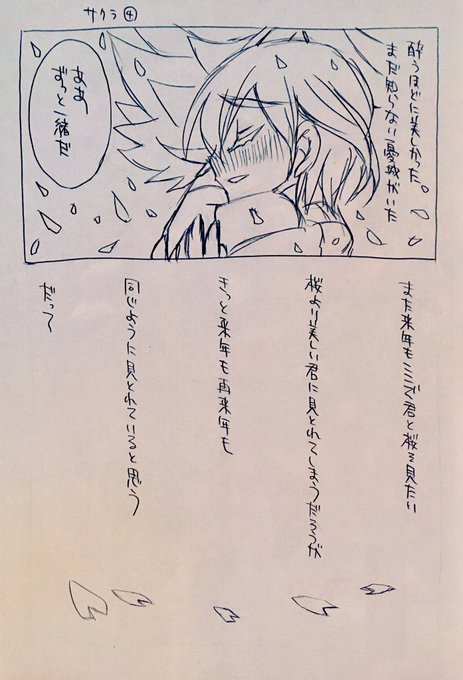 サクラ④
酔うほどに美しかった。
まだ知らない憂城がいた
ああ
ずっと一緒だ
また来年もここで君と桜を見たい
桜より美しい君に見とれてしまうだろうが
きっと来年も再来年も
同じように見とれていると思う
だって〜